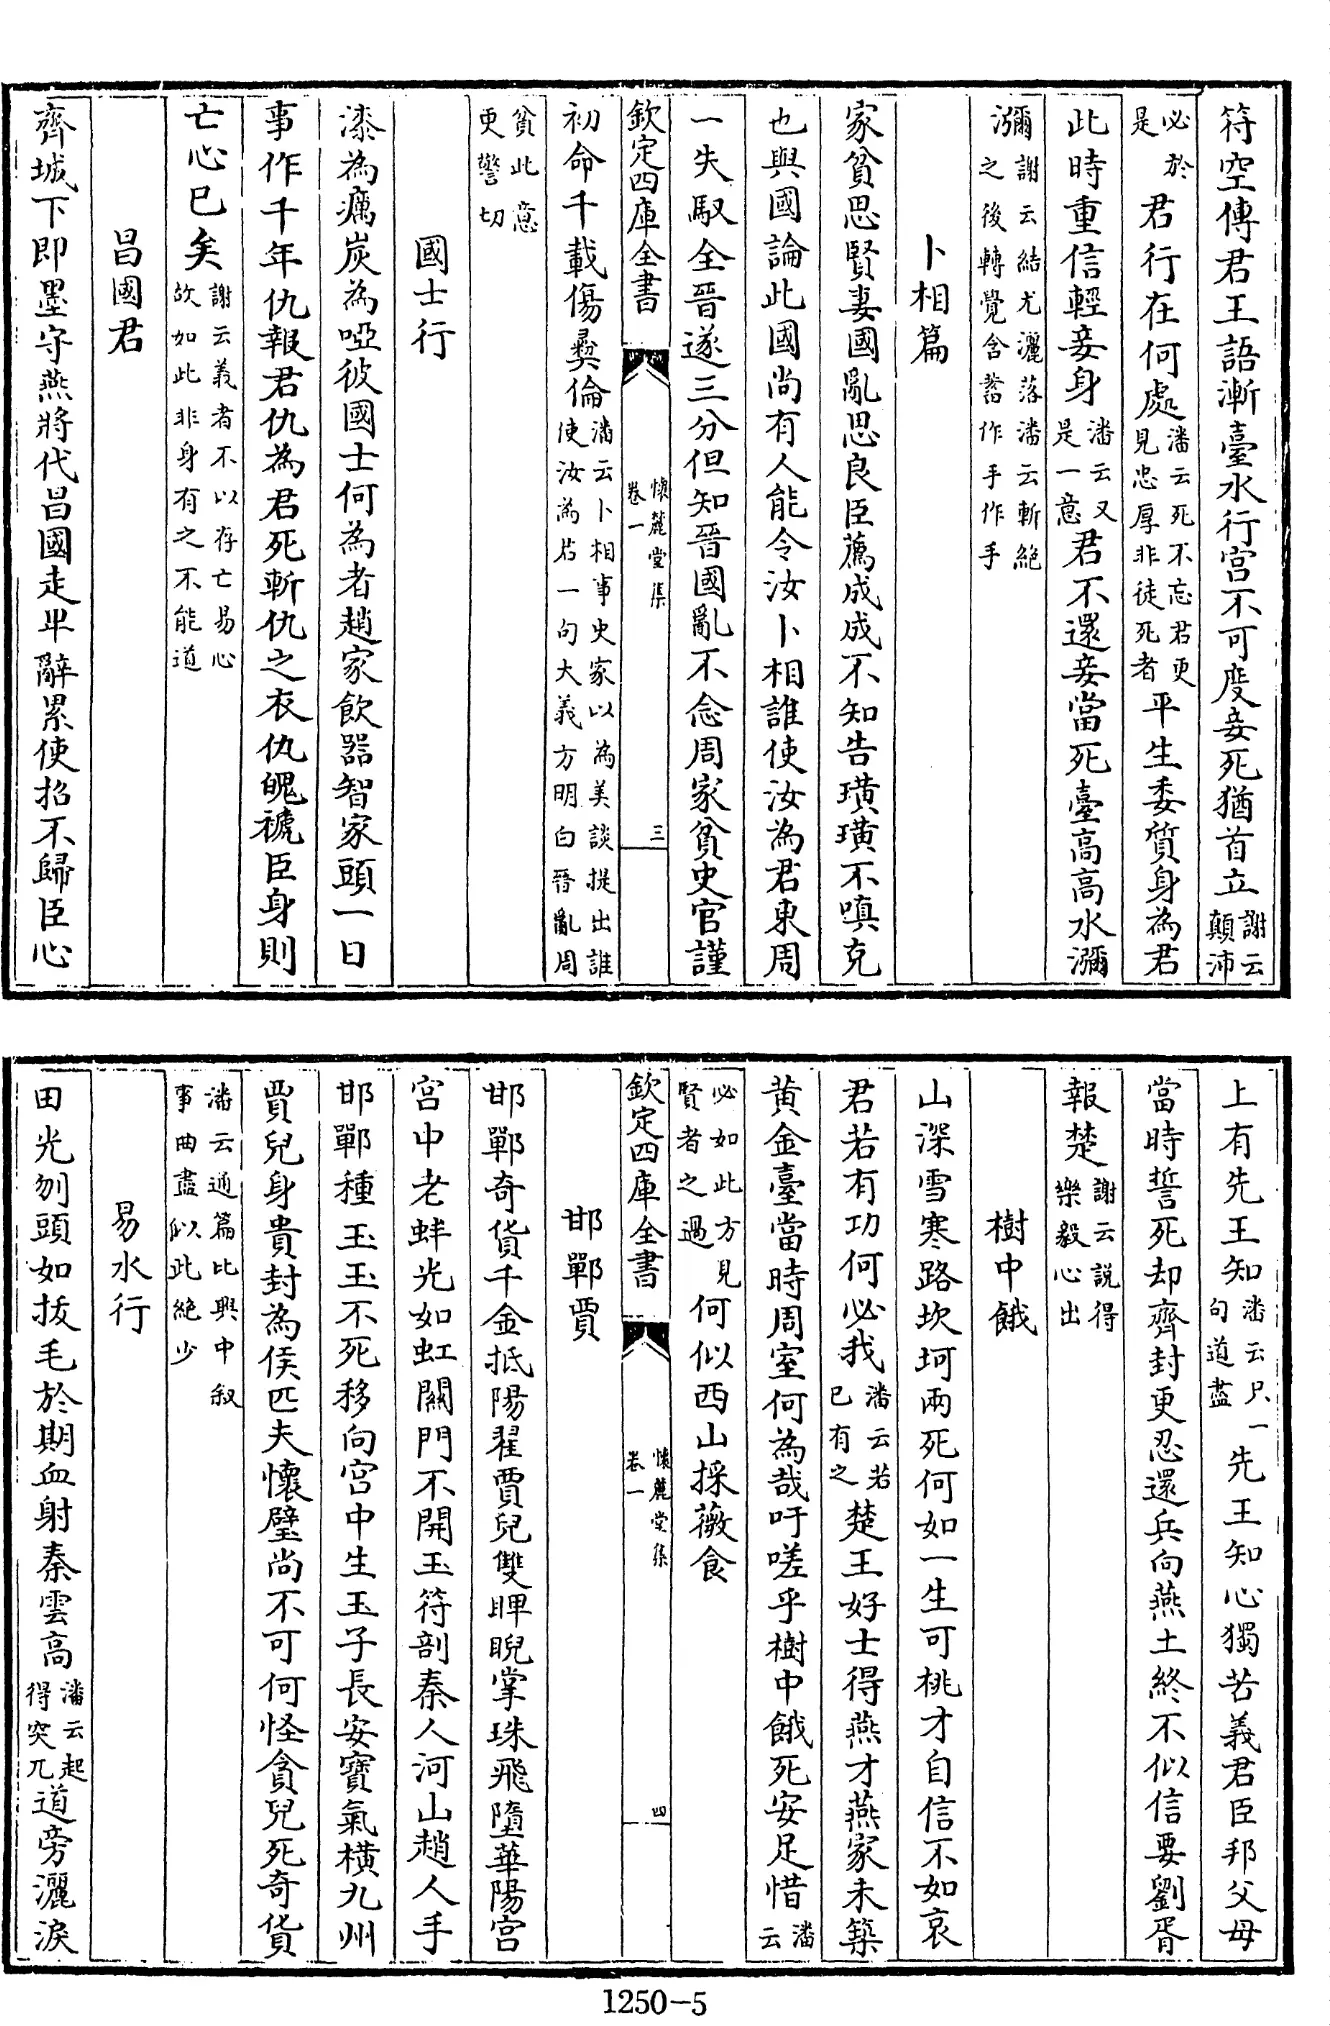 符空傳君王語漸臺水行宮不可度妾死猶首立謝云顛沛
必於是君行在何處潘云死不忘君更見忠厚非徒死者平生委質身為君
此時重信輕妾身潘云又是一意君不還妾當死臺高高水瀰
瀰謝云結尤灑落潘云斬絶之後轉覺含蓄作手作手
卜相篇
家貧思賢妻國亂思良臣薦成成不知告璜璜不嗔克
也與國論此國尚有人能令汝卜相誰使汝為君東周
一失馭全晉遂三分但知晉國亂不念周家貧史官謹
欽定四庫全書
懷麓堂集
卷一
三
初命千載傷彛倫潘云卜相事史家以為美談提出誰使汝為君一句大義方明白晉亂周
貧此意更警切
國士行
漆為癘炭為啞彼國士何為者趙家飲器智家頭一日
事作千年仇報君仇為君死斬仇之衣仇魄褫臣身則
亡心已矣謝云義者不以存亡易心故如此非身有之不能道
昌國君
齊城下即墨守燕將代昌國走毕辭累使招不歸臣心
上有先王知潘云只一句道盡先王知心獨苦義君臣邦父母
當時誓死却齊封更忍還兵向燕土終不似信要劉胥
報楚謝云説得樂毅心出
樹中餓
山深雪寒路坎坷兩死何如一生可桃才自信不如哀
君若有功何必我潘云若已有之楚王好士得燕才燕家未築
黄金臺當時周室何為哉吁嗟乎樹中餓死安足惜潘云
必如此方見賢者之過何似西山採薇食
欽定四庫全書
懷麓堂集
卷一
四
邯鄲賈
邯鄲奇貨千金抵陽翟賈兒雙睥睨掌珠飛墮華陽宮
宮中老蚌光如虹關門不開玉符剖秦人河山趙人手
邯鄲種玉玉不死移向宮中生玉子長安寶氣横九州
賈兒身貴封為侯匹夫懷璧尚不可何怪貪兒死奇貨
潘云通篇比興中叙事曲盡似此絶少
易水行
田光刎頭如拔毛於期血射秦雲高潘云起得突兀道旁灑淚
1250-5